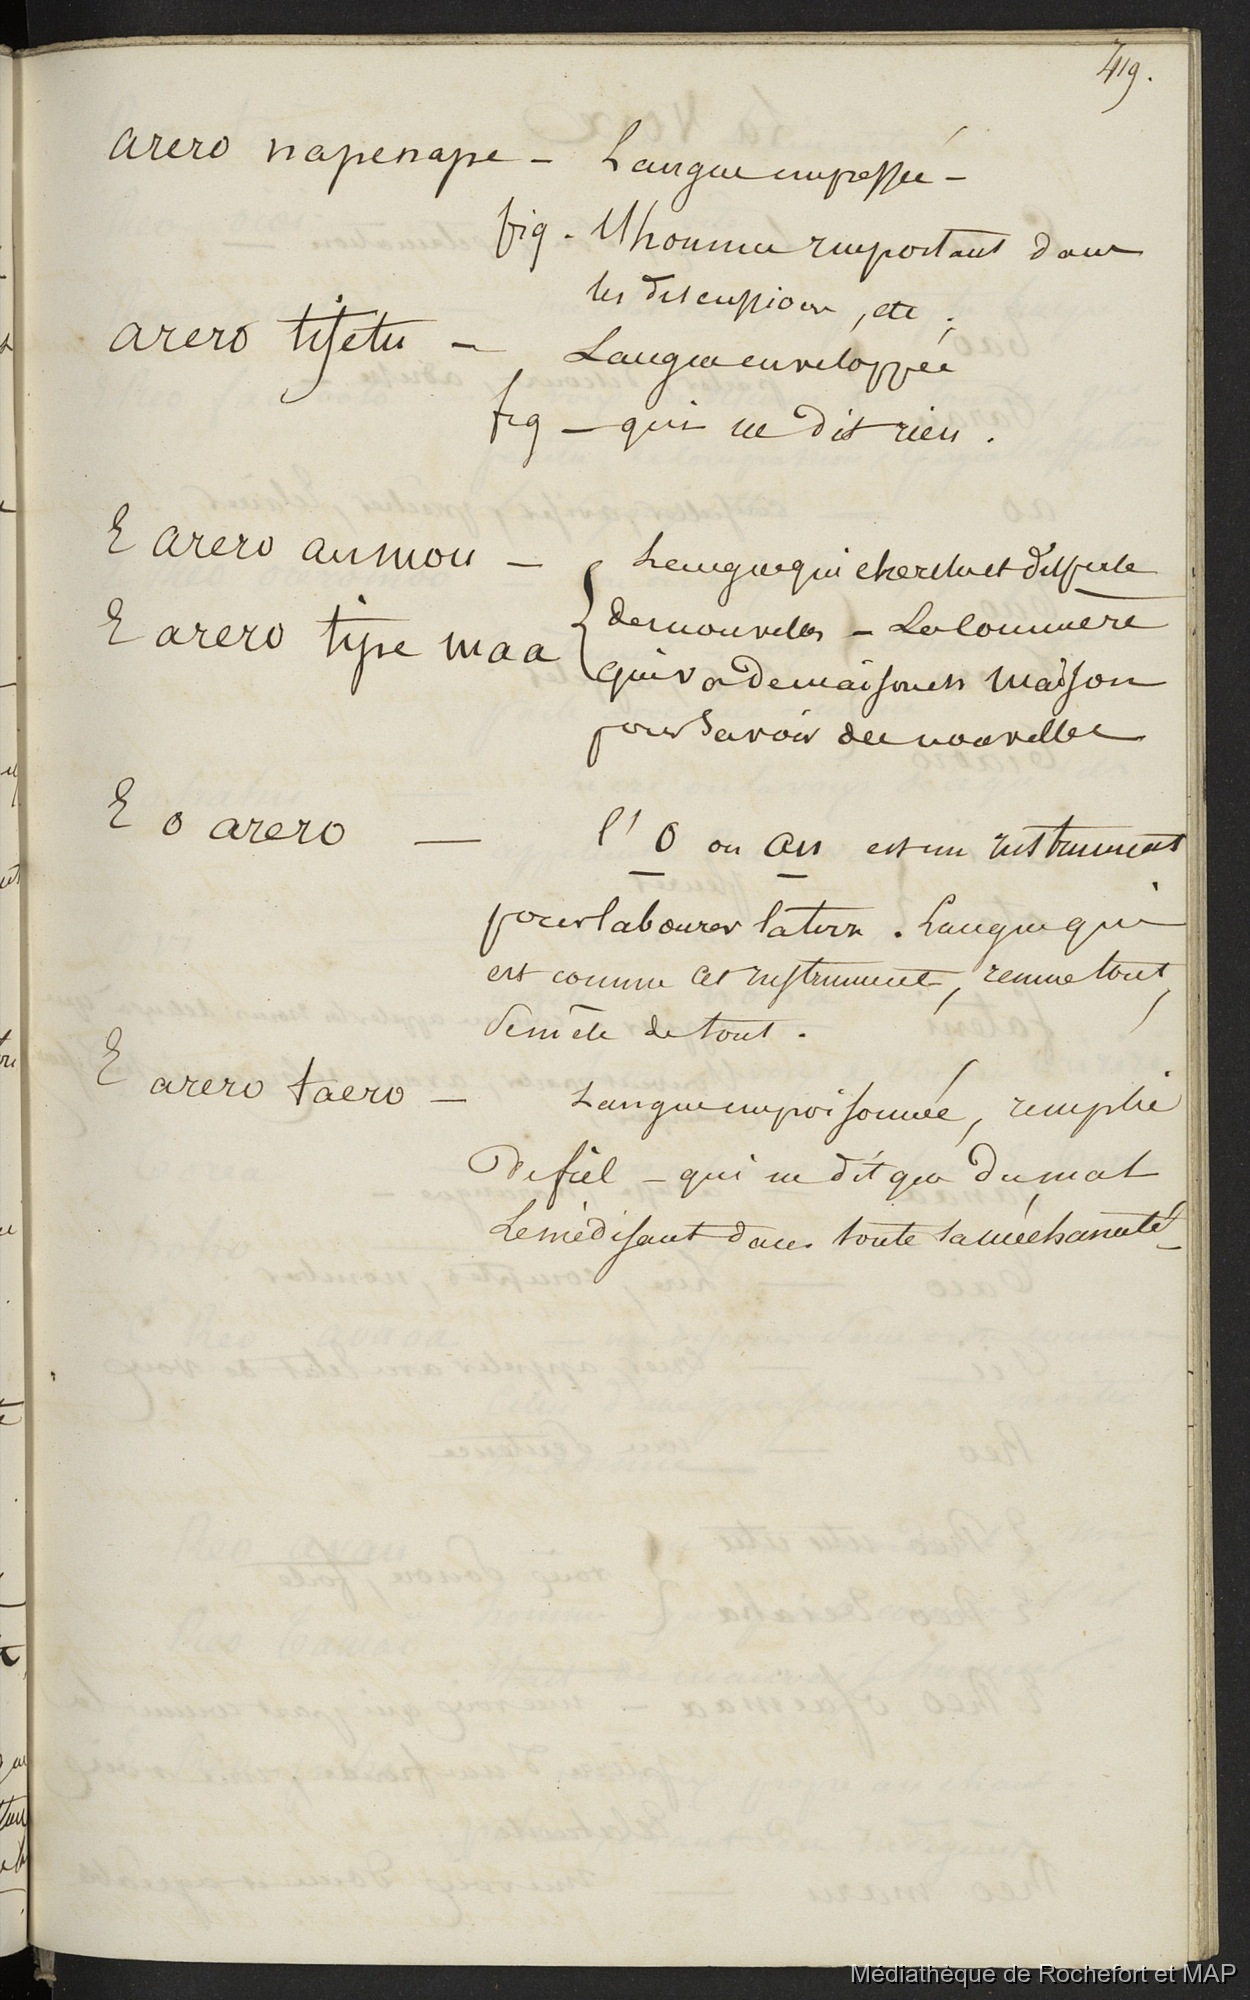 419.
arero napenape - Langue empressée -
fig. L'homme important dans
les discussions, etc.
arero tifetu - Langue enveloppée
fig - qui ne dit rien.
E arero aumou - Langue qui cherche et dispute
E arero tipe maa { des nouvelles - La commère
qui va de maison en maison
pour savoir des nouvelles
E o arero - l'O ou au est un instrument
pour labourer la terre. Langue qui
est comme cet instrument, remue tout,
se mêle de tout.
E arero taero - Langue empoisonnée, remplie
de fiel - qui ne dit que du mal
Le médisant dans toute sa méchanceté -
Médiathèque de Rochefort et MAP